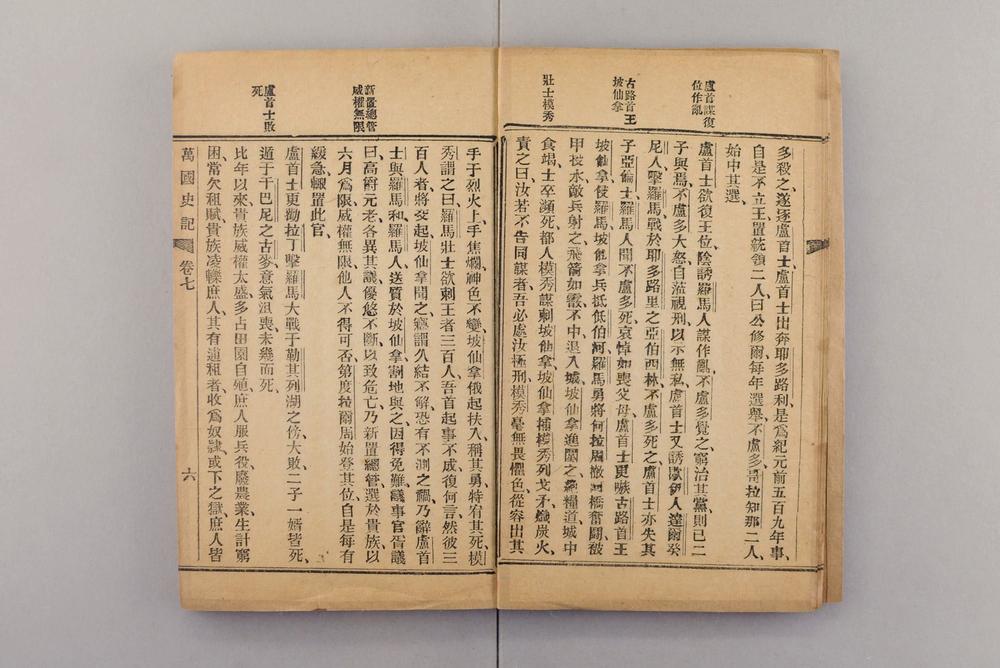 盧首謀復
位作亂
古路首王
坡仙拿
壯士模秀
多殺之、遂逐盧首士、盧首士出奔耶多路利、是為紀元前五百九年事、
自是不立王、置統領二人、曰公修爾、每年選舉、不盧多、哥拉知那二人、
始中其選、
盧首士欲復王位、陰誘羅馬人謀作亂、不盧多覺之、窮治其黨、則已二
子與焉、不盧多大怒、自涖視刑、以示無私、盧首士又誘歐伊人達爾癸
尼人擊羅馬、戰於耶多路里之亞伯西林、不盧多死之、盧首士亦失其
子亞倫士、羅馬人聞不盧多死、哀悼如喪父母、盧首士更嗾古路首王
坡仙拿使羅馬、坡仙拿兵抵低伯河、羅馬勇將何拉周撤河橋奮鬬、被
甲投水、敵兵射之、飛箭如霰、不中、退入城、坡仙拿進圍之、絕糧道、城中
食竭、士卒瀕死、都人模秀謀刺坡仙拿、坡仙拿捕模秀、列戈矛、熾炭火、
責之曰、汝若不告同謀者、吾必處汝極刑、模秀毫無畏懼色、從容出其
新置總管
威權無限
盧首士敗
死
手于烈火上、手焦爛、神色不變、坡仙拿俄起扶入、稱其勇、特宥其死、模
秀謂之曰、羅馬壯士欲刺王者三百人、吾首起事不成、復何言、然彼三
百人者將交起、坡仙拿聞之、竊謂久結不解、恐有不測之禍、乃辭盧首
士與羅馬和、羅馬人送質於坡仙拿、割地與之、因得免難、議事官胥議
曰、高爵元老各異其議、優悠不斷、以致危亡、乃新置總管、選於貴族、以
六月為限、威權無限、他人不得可否、第度拉爾周始登其位、自是每有
緩急、輙置此官、
盧首士更勸拉丁擊羅馬、大戰于勒其列湖之傍、大敗、二子一婿皆死、
遁于干巴尼之古麥、意氣沮喪、未幾而死、
比年以來、貴族威權太盛、多占田園自殖、庶人服兵役、廢農業、生計窮
困、常欠租賦、貴族凌轢庶人、其有逋租者、收為奴隸、或下之獄、庶人皆
萬國史記
卷七
六